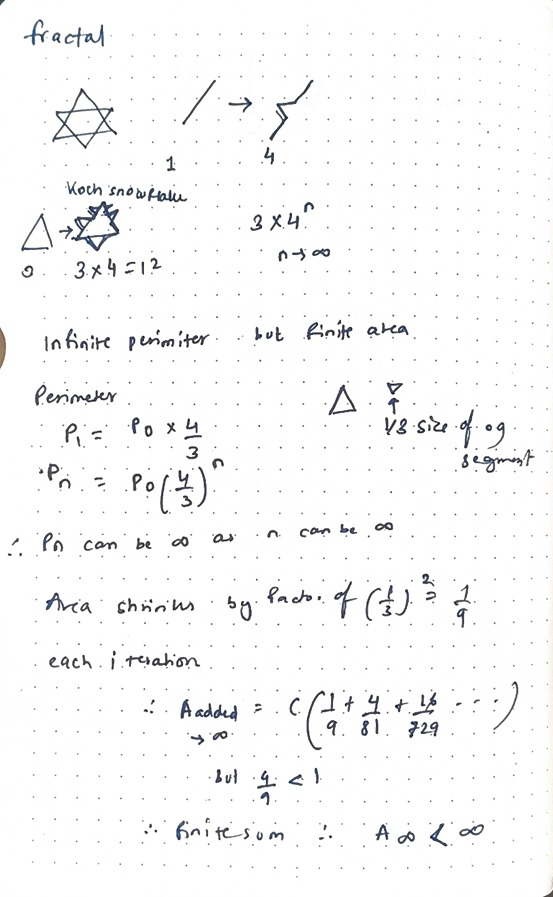 fractal
1 → 4
Koch snowflake
0 → 3 x 4 = 12
3 x 4ⁿ
n → ∞
Infinite perimiter but finite area
Perimeter
P₁ = P₀ x 4/3
1/3 size of og
segment
Pₙ = P₀(4/3)ⁿ
∴ Pₙ can be ∞ as n can be ∞
Area shrinks by factor of (1/3)² = 1/9
each iteration
∴ A added = C(1/9 + 4/81 + 16/729 ...)
→ ∞
but 4/9 < 1
∴ finite sum ∴ A∞ < ∞